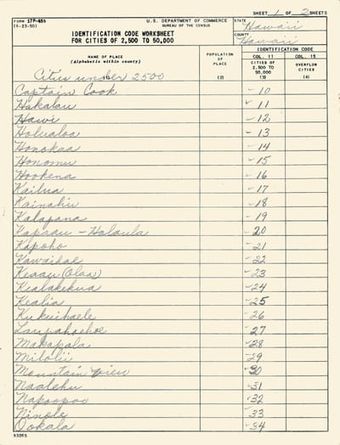 FORM 17P-85b
(5-23-50)
U.S. DEPARTMENT OF COMMERCE
BUREAU OF THE CENSUS
SHEET 1 OF 2 SHEETS
STATE
Hawaii
COUNTY
Hawaii
IDENTIFICATION CODE WORKSHEET
FOR CITIES OF 2,500 TO 50,000
NAME OF PLACE
(Alphabetic within county)
POPULATION OF PLACE
IDENTIFICATION CODE
COL. 11
CITIES OF 2,500 TO 50,000
COL. 15
OVERFLOW CITIES
(1) (2) (3) (4)
Cities under 2500
Captain Cook - 10
Hakalau - 11
Hawi - 12
Holualoa - 13
Honokaa - 14
Honomu - 15
Hookena - 16
Kailua - 17
Kainahu - 18
Kalapana - 19
Kapaau - Halaula - 20
Kapoho - 21
Kawaihae - 22
Keaau (Olaa) - 23
Kealakekua - 24
Kealia - 25
Kukuihaele - 26
Laupahoehoe - 27
Makapala - 28
Milolii - 29
Mountain View - 30
Naalehu - 31
Napoopoo - 32
Ninole - 33
Ookala - 34